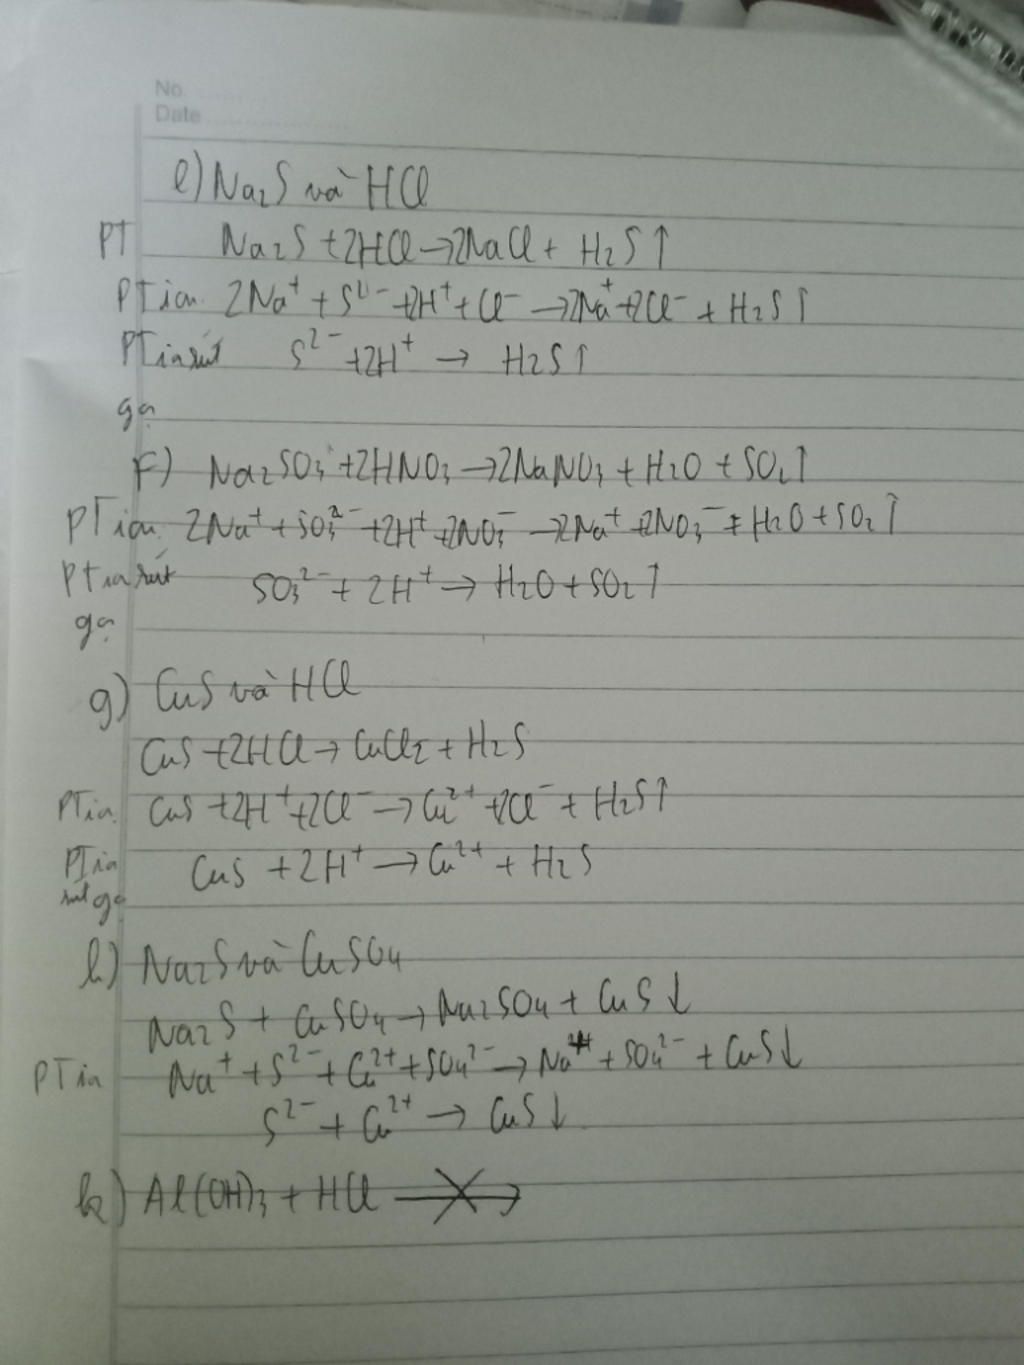 No.
Date
e) Na2S và HCl
PT Na2S + 2HCl → 2NaCl + H2S ↑
PTion 2Na⁺ + S²⁻ + 2H⁺ + Cl⁻ → 2Na⁺ + 2Cl⁻ + H2S ↑
PTion rút S²⁻ + 2H⁺ → H2S ↑
gọ
F) Na2SO3 + 2HNO3 → 2NaNO3 + H2O + SO2 ↑
PTion 2Na⁺ + SO3²⁻ + 2H⁺ + 2NO3⁻ → 2Na⁺ + 2NO3⁻ + H2O + SO2 ↑
Ption rút SO3²⁻ + 2H⁺ → H2O + SO2 ↑
gọ
g) CuS và HCl
CuS + 2HCl → CuCl2 + H2S
PTion CuS + 2H⁺ + 2Cl⁻ → Cu²⁺ + 2Cl⁻ + H2S ↑
PTion CuS + 2H⁺ → Cu²⁺ + H2S
rút gọ
h) Na2S và CuSO4
Na2S + CuSO4 → Na2SO4 + CuS ↓
PTion Na⁺ + S²⁻ + Cu²⁺ + SO4²⁻ → Na⁺ + SO4²⁻ + CuS ↓
S²⁻ + Cu²⁺ → CuS ↓
k) Al(OH)3 + HCl →